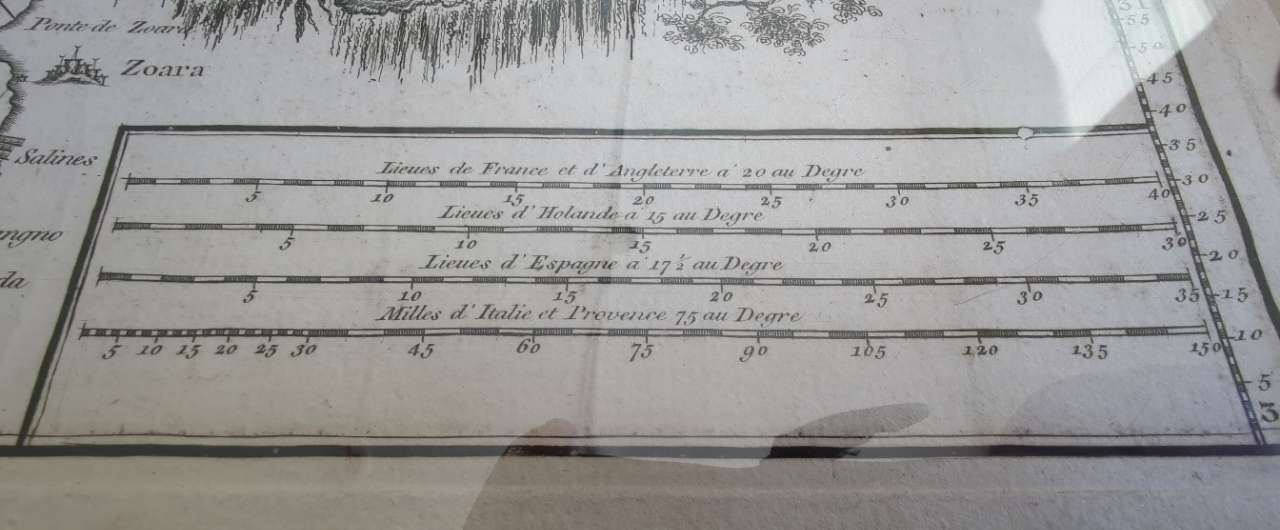 Ponte de Zoara
Zoara
Salines
ngno
da
Lieues de France et d'Angleterre a 20 au Degre
5 10 15 20 25 30 35 40
Lieues d'Holande a 15 au Degre
5 10 15 20 25 30
Lieues d'Espagne a 17½ au Degre
5 10 15 20 25 30 35
Milles d'Italie et Provence 75 au Degre
5 10 15 20 25 30 45 60 75 90 105 120 135 150
31
55
50
45
40
35
30
25
20
15
10
5
3